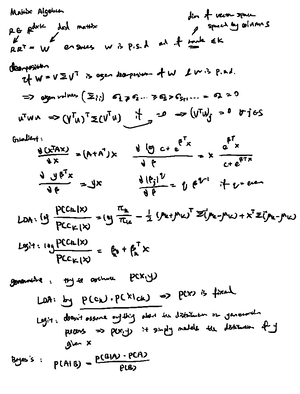 Matrix Algebra
dim of vector space
spaced by columns
RRᵀ = W ensures W is p.s.d and of rank ≤ K
decomposition
if W = V Σ Vᵀ is eigen decomposition of W & W is p.s.d.
⇒ eigen values (Σᵢᵢ) σ₁ ≥ σ₂ ... ≥ σₛ ≥ σₛ₊₁ ... = 0
uᵀWu ⇒ (Vᵀu)ᵀ Σ (Vᵀu) if = 0 ⇒ (Vᵀu)ⱼ = 0 ∀ j ≤ s
Gradient:
∂(xᵀAx)/∂x = (A+Aᵀ)x ∂ log c+e^(βᵀx)/∂β = x e^(βᵀx)/(c+e^(βᵀx))
∂ yβᵀx/∂β = yx ∂|βⱼ|^q/∂β = q β^(q-1) if q = even
LDA: log P(Cₖ|x)/P(Cₖ|x) = log πₖ/πₖ - ½ (μₖ+μₖ)ᵀ Σ⁻¹(μₖ-μₖ) + xᵀ Σ⁻¹(μₖ-μₖ)
Logit: log P(Cₖ|x)/P(Cₖ|x) = β₀ + βᵀx
generative: try to estimate P(X,Y)
LDA: by P(Cₖ) · P(X|Cₖ) ⇒ P(X) is fixed
Logit: doesn't assume anything about the distribution or generation
process ⇒ P(X,Y) it simply models the distribution for y
given x
Bayes's: P(A|B) = P(B|A) · P(A) / P(B)